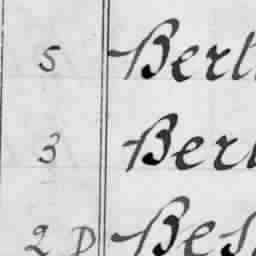 5 Bert
3 Ber
2 D Bes